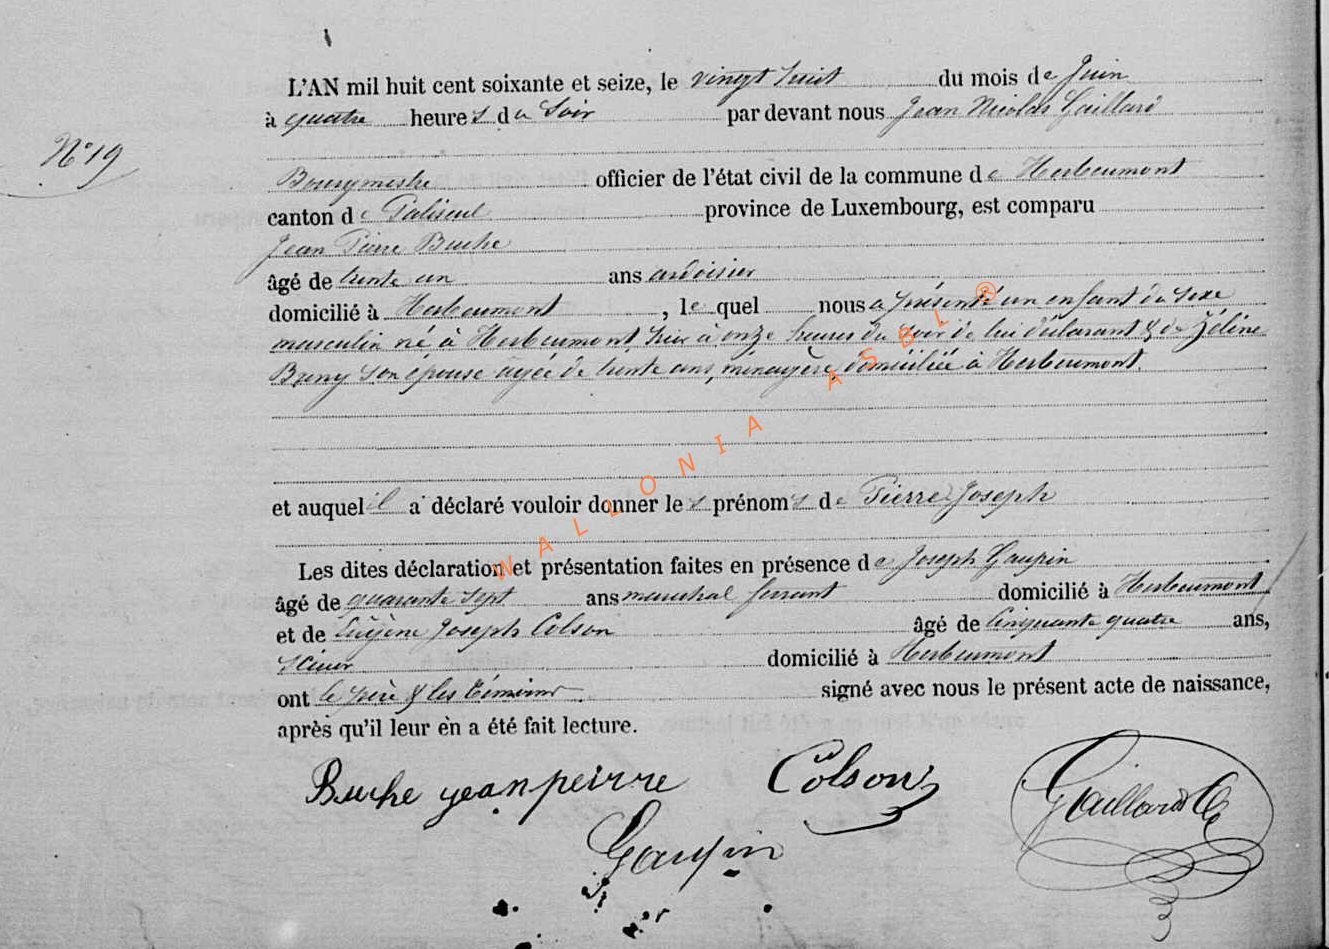 L'AN mil huit cent soixante et seize, le vingt huit du mois de Juin
à quatre heures du Soir par devant nous Jean Nicolas Gaillard
N° 19
Bourgmestre officier de l'état civil de la commune de Herbeumont
canton de Paliseul province de Luxembourg, est comparu
Jean Pierre Buche
âgé de trente un ans ardoisier
domicilié à Herbeumont, lequel nous a présenté un enfant du sexe
masculin né à Herbeumont, hier à onze heures du soir de lui déclarant & de Zéline
son épouse agée de trente ans, ménagère, domiciliée à Herbeumont.
et auquel il a déclaré vouloir donner les prénoms de Pierre Joseph
Les dites déclaration et présentation faites en présence de Joseph Gaupin
âgé de quarante sept ans maréchal ferrant domicilié à Herbeumont
et de Eugène Joseph Colson âgé de Cinquante quatre ans,
Scieur domicilié à Herbeumont
ont le père & les témoins signé avec nous le présent acte de naissance,
après qu'il leur en a été fait lecture.
Buche jean peirre Colson Gaillard
Gaupin
WALLONIA ASBL ®